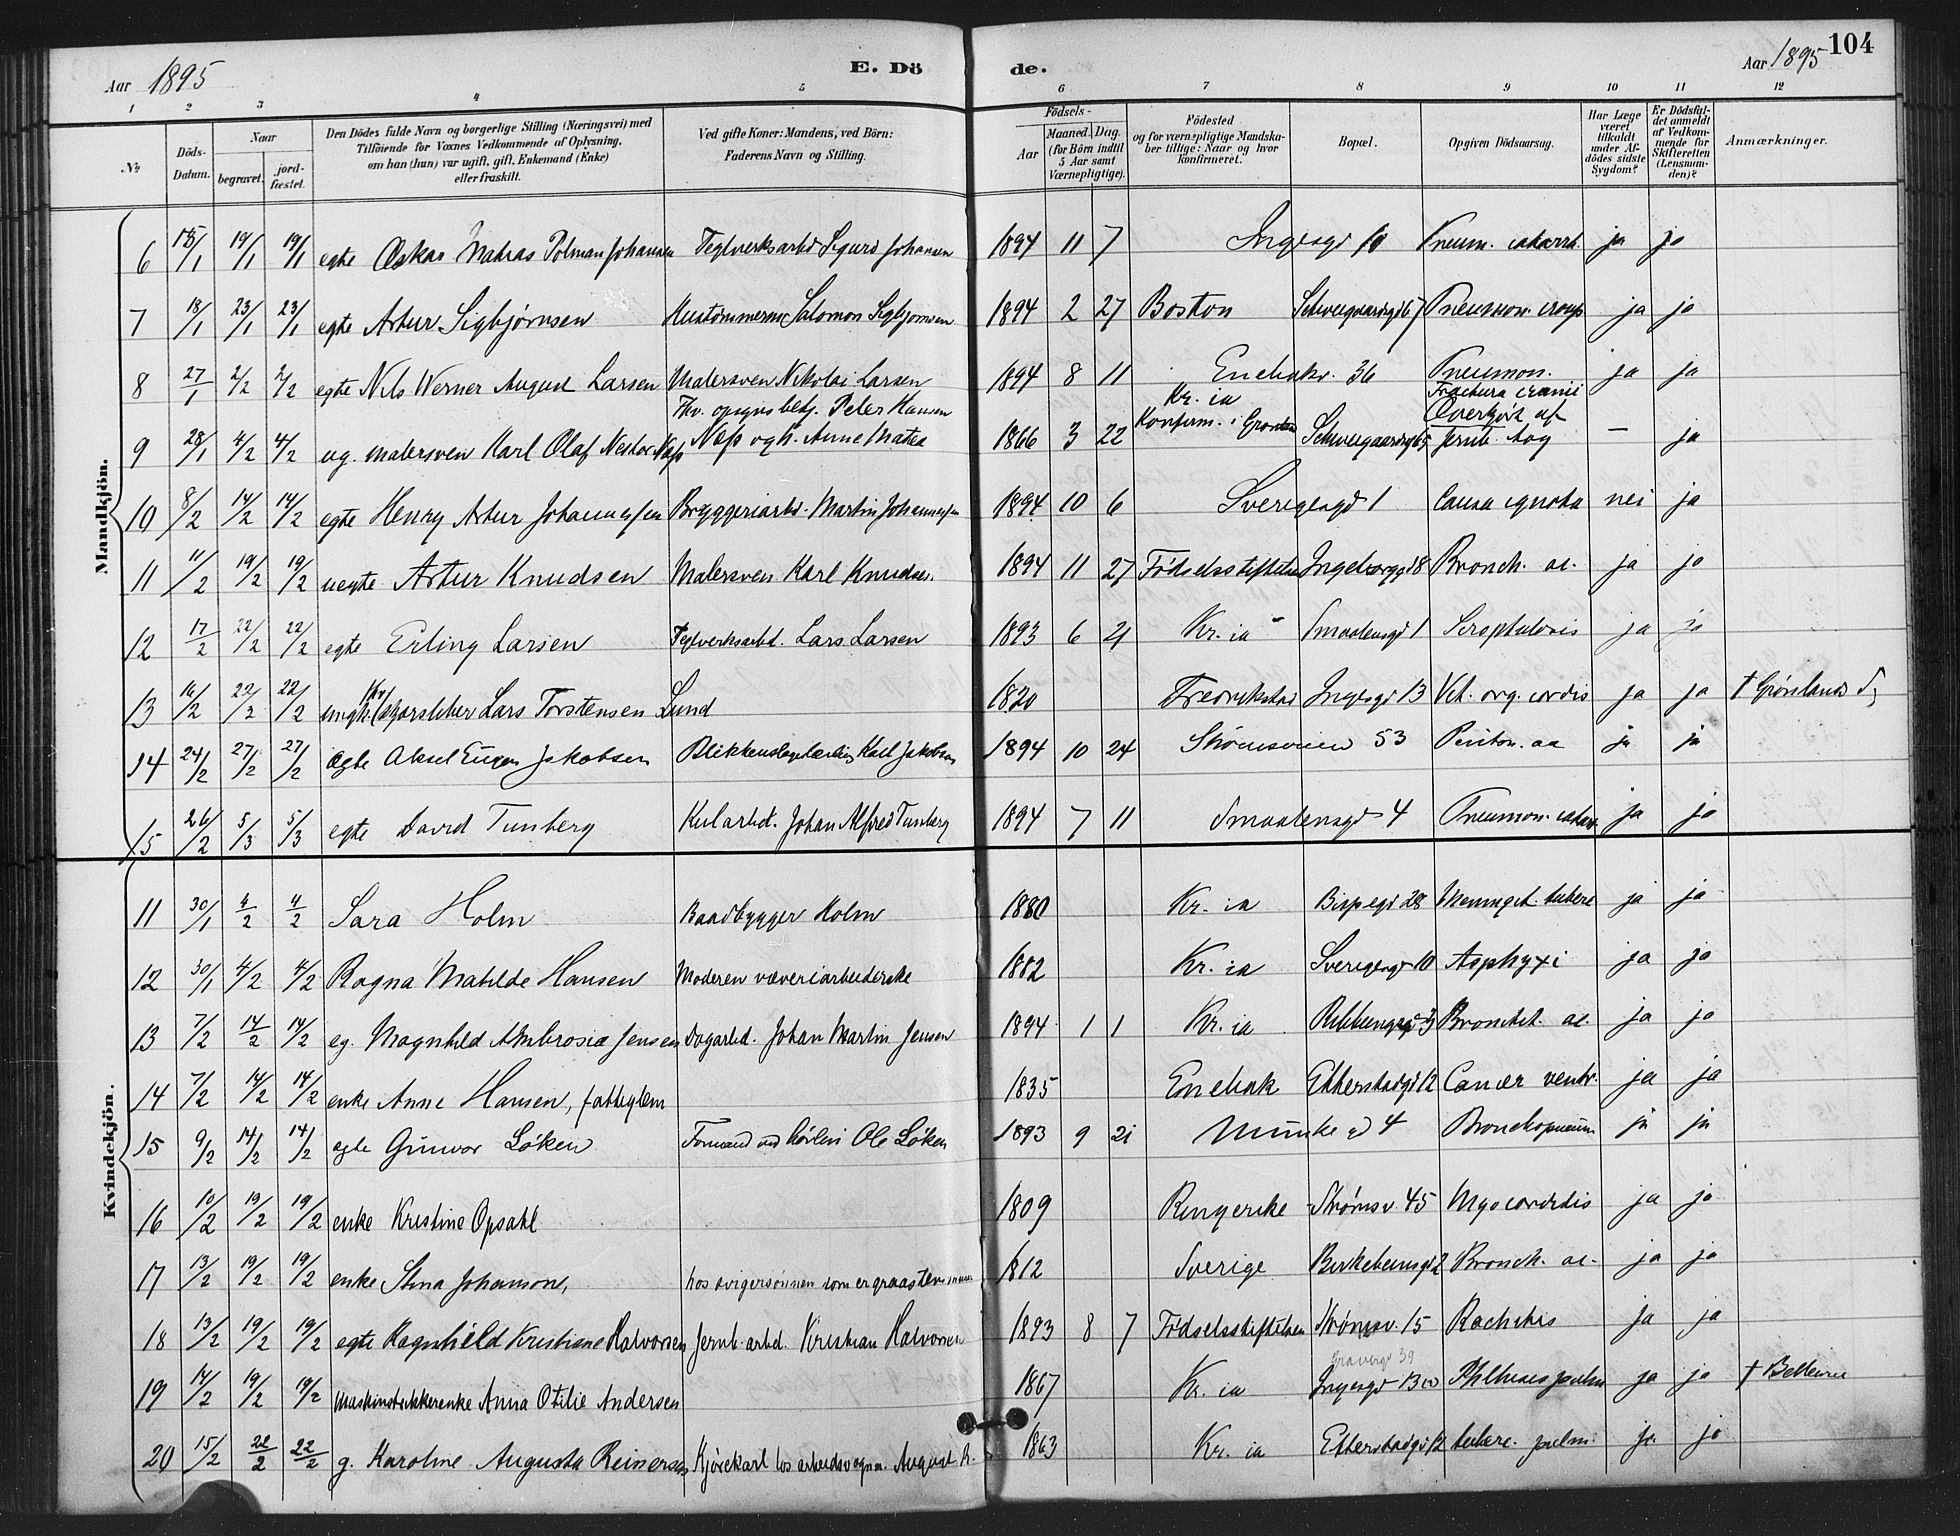 Aar 1895 E. Dö de. Aar 1895 104
1 2 3 4 5 6 7 8 9 10 11 12
№ Döds-Datum. Naar begravet. jord-fæstet. Den Dödes fulde Navn og borgerlige Stilling (Næringsvei) med Tilföiende for Voxnes Vedkommende af Oplysning, om han (hun) var ugift, gift, Enkemand (Enke) eller fraskilt. Ved gifte Koner: Mandens, ved Börn: Faderens Navn og Stilling. Födsels- Aar Maaned. Dag. (for Börn indtil 5 Aar samt Værnepligtige). Födested og for værnepligtige Mandska-ber tillige: Naar og hvor konfirmeret. Bopæl. Opgiven Dödsaarsag. Har Læge været tilkaldt under Af-dödes sidste Sygdom? Er Dödsfal-det anmeldt af Vedkom-mende for Skifteretten (Lensman-den)? Anmærkninger.
Mandkjön.
6 15/1 19/1 19/1 egte Oskar Mathias Polman Johansen Teglverksarbd Sigurd Johansen 1894 11 7 Ingesgd 10 Pneum. catarrh. ja ja
7 18/1 23/1 23/1 egte Artur Sigbjørnsen Hustømmerm Salomon Sigbjørnsen 1894 2 27 Boston Schweigaardsgd 67 Pneumon. croup ja ja
8 27/1 2/2 2/2 egte Nils Werner August Larsen Malersven Nikolai Larsen 1894 8 11 Enebakv. 36 Pneumon. ja ja
9 28/1 4/2 4/2 ug. malersven Karl Olaf Nestor Næss Fhv. opsynsbetj. Peter Hansen Næss og h. Anne Matea 1866 3 22 Kr. ia Konfirm. i Grønland Schweigaardsgd 65 Fractura cranii Overkjørt af Jernb. tog – ja
10 8/2 14/2 14/2 egte Henry Artur Johannessen Bryggeriarbd. Martin Johannessen 1894 10 6 Sverigesgd 1 Causa ignota nei ja
11 11/2 19/2 19/2 uegte Artur Knudsen Malersven Karl Knudsen 1894 11 27 Fødselsstiftelsen Ingeborgsgd 8 Bronch. ac. ja ja
12 17/2 22/2 22/2 egte Erling Larsen Teglverksarbd. Lars Larsen 1893 6 21 Kr. ia Smaalensgd 1 Scrophulosis ja ja
13 16/2 22/2 22/2 ungk. Lars Torstensen Lund 1820 Fredrikstad Ingesgd 13 Vit. org. cordis ja ja † Grønlands
14 24/2 27/2 27/2 egte Aksel Eugen Jakobsen Blikkenslagerlærling Karl Jakobsen 1894 10 24 Strømsveien 53 Periton. ac ja ja
15 26/2 5/3 5/3 egte David Tunberg Kularbd. Johan Alfred Tunberg 1894 7 11 Smaalensgd 4 Pneumon. catarr. ja ja
Kvindekjön.
11 30/1 4/2 4/2 Sara Holm Baadbygger Holm 1880 Kr. ia Bispegd 28 Meningit. tuberc ja ja
12 30/1 4/2 4/2 Ragna Matilde Hansen Moderen væveriarbeiderske 1882 Kr. ia Sverigesgd 10 Asphyxi ja ja
13 7/2 14/2 14/2 eg. Magnhild Ambrosia Jensen Dagarbd. Johan Martin Jensen 1894 1 1 Kr. ia Ribbungsgd 3 Bronchit. ac. ja ja
14 7/2 14/2 14/2 enke Anne Hansen, fattiglem 1835 Enebak Etterstadgd 12 Cancer ventr. ja ja
15 9/2 14/2 14/2 egte Gunvor Løken Formand ved Ole Løken 1893 9 21 Munkegd 4 Bronchopneum ja ja
16 10/2 19/2 19/2 enke Kristine Opsahl 1809 Ringerike Strømsv. 45 Myocarditis ja ja
17 13/2 19/2 19/2 enke Stina Johanson, hos svigersønnen som er graastensmurer 1812 Sverige Birkebeinsgd 2 Bronch. ac. ja ja
18 13/2 19/2 19/2 egte Ragnhild Kristiane Halvorsen Jernb. arbd. Kristian Halvorsen 1893 8 7 Fødselsstiftelsen Strømsv. 15 Rachitis ja ja
19 14/2 19/2 19/2 Maskinstrikkerenke Anna Otilie Andersen 1867 Kr. ia Ingesgd 13 Phthisis pulm ja ja † Bellevue
20 15/2 22/2 22/2 g. Karoline Augusta Reinersen Kjørekarl hos arbeidsvognm. August R. 1863 Kr. ia Etterstadgd 12 tuberc. pulm. ja ja